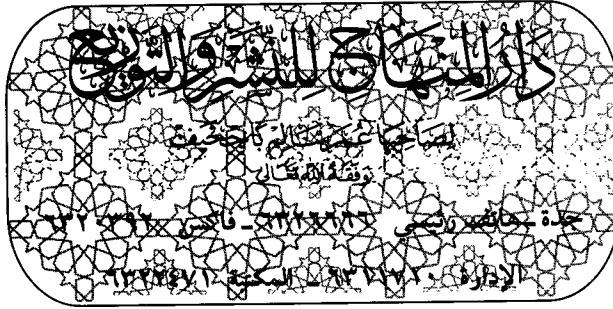 دَارُ المِنْهَاجِ لِلنَّشْرِ وَالتَّوْزِيعِ
لصاحبها عمر سالم باجخيف
وفقه الله تعالى
جدة - هاتف رئيسي ٦٣٢٦٦٦٦ - فاكس ٦٣٢٠٣٩٢
الإدارة - المكتبة ٦٣٢٢٤٧١